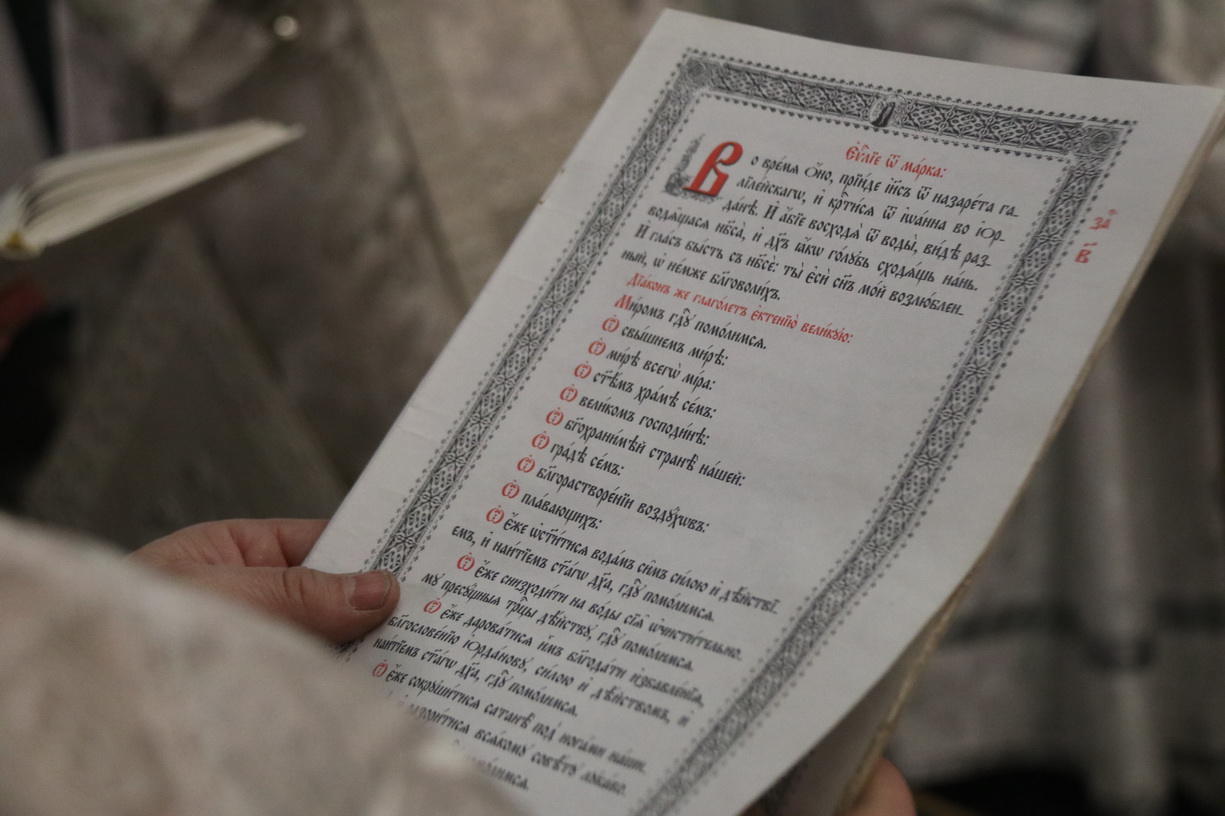 Л
Є҆ѵⷢ҇лїе ѿ ма́рка:
Во вре́мѧ ѻ҆́но, прїи́де і҆и҃съ ѿ назаре́та га-
лїле́йскагѡ, и҆ крⷭ҇ти́сѧ ѿ і҆ѡа́нна во і҆ѻр-
да́нѣ. И҆ а҆́бїе восходѧ̀ ѿ воды̀, ви́дѣ раз-
водѧ́щасѧ нб҃са̀, и҆ дх҃ъ ꙗ҆́кѡ го́лꙋбь сходѧ́щь на́нь.
И҆ гла́съ бы́сть съ нб҃сѐ: ты̀ є҆сѝ сн҃ъ мо́й возлю́блен-
ный, ѡ҆ не́мже бл҃говоли́хъ.
за҃
в҃
Дїа́конъ же глаго́летъ є҆ктенїю̀ вели́кꙋю:
Ми́ромъ гдⷭ҇ꙋ помо́лимсѧ.
Ѡ҆ свы́шнемъ ми́рѣ:
Ѡ҆ ми́рѣ всегѡ̀ мі́ра:
Ѡ҆ ст҃ѣ́мъ хра́мѣ се́мъ:
Ѡ҆ вели́комъ господи́нѣ:
Ѡ҆ бг҃охрани́мѣй странѣ̀ на́шей:
Ѡ҆ гра́дѣ се́мъ:
Ѡ҆ бл҃горастворе́нїи воздꙋ́хѡвъ:
Ѡ҆ пла́вающихъ:
Ѡ҆ є҆́же ѡ҆ст҃и́тисѧ вода́мъ си̑мъ си́лою и҆ дѣ́йствї-
емъ, и҆ наи́тїемъ ст҃а́гѡ дх҃а, гдⷭ҇ꙋ помо́лимсѧ.
Ѡ҆ є҆́же снизходи́ти на во́ды сїѧ̑ ѡ҆чисти́тельно-
мꙋ пресꙋ́щныѧ трⷪ҇цы дѣ́йствꙋ, гдⷭ҇ꙋ помо́лимсѧ.
Ѡ҆ є҆́же дарова́тисѧ и҆̀мъ бл҃года́ти и҆збавле́нїѧ,
благослове́нїю і҆ѻрда́новꙋ, си́лою и҆ дѣ́йствомъ, и҆
наи́тїемъ ст҃а́гѡ дх҃а, гдⷭ҇ꙋ помо́лимсѧ.
Ѡ҆ є҆́же сокрꙋши́тисѧ сатанѣ̀ под̾ нога́ми на́ши-
всѧ́комꙋ совѣ́тꙋ лꙋка́во-